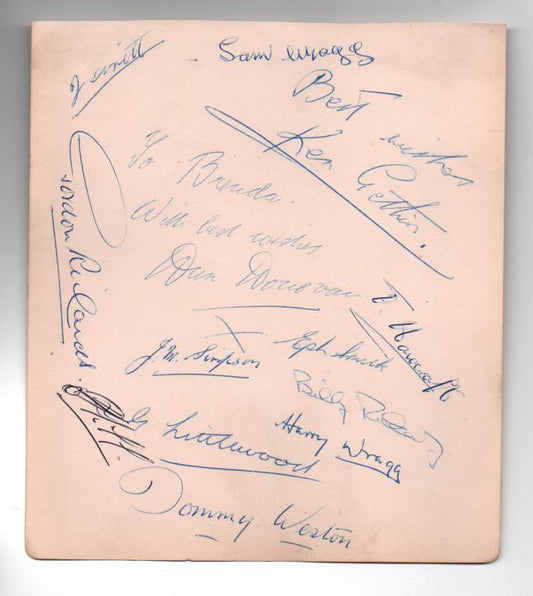 Sam Wragg
Best wishes
Ken Gethin.
To Brenda.
With best wishes
Dan Donovan
Gordon Richards.
J.M. Simpson
Eph Smith
Billy
G Littlewood
Harry Wragg
Tommy Weston